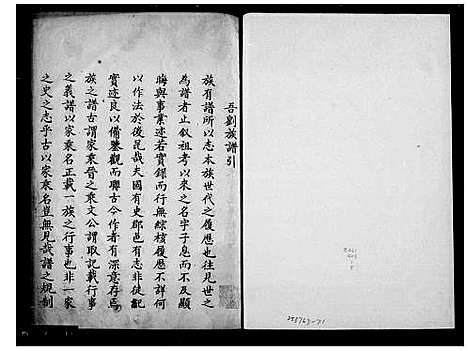 吾劉族譜引
族有譜所以志本族世代之履歷也往見世之
為譜者止叙祖考以來之名字子息而不及顯
晦與事業述若實錄而行無綜核履歷不詳何
以作法於後昆哉夫國有史郡邑有志非徒記
實迹良以備鑒觀而聯古今作者有深意存焉
族之譜古謂家乘晉之乘文公謂取記載行事
之義譜以家乘名正載一族之行事也非一家
之史之志乎古以家乘名豈無見哉譜之規制
253763-71